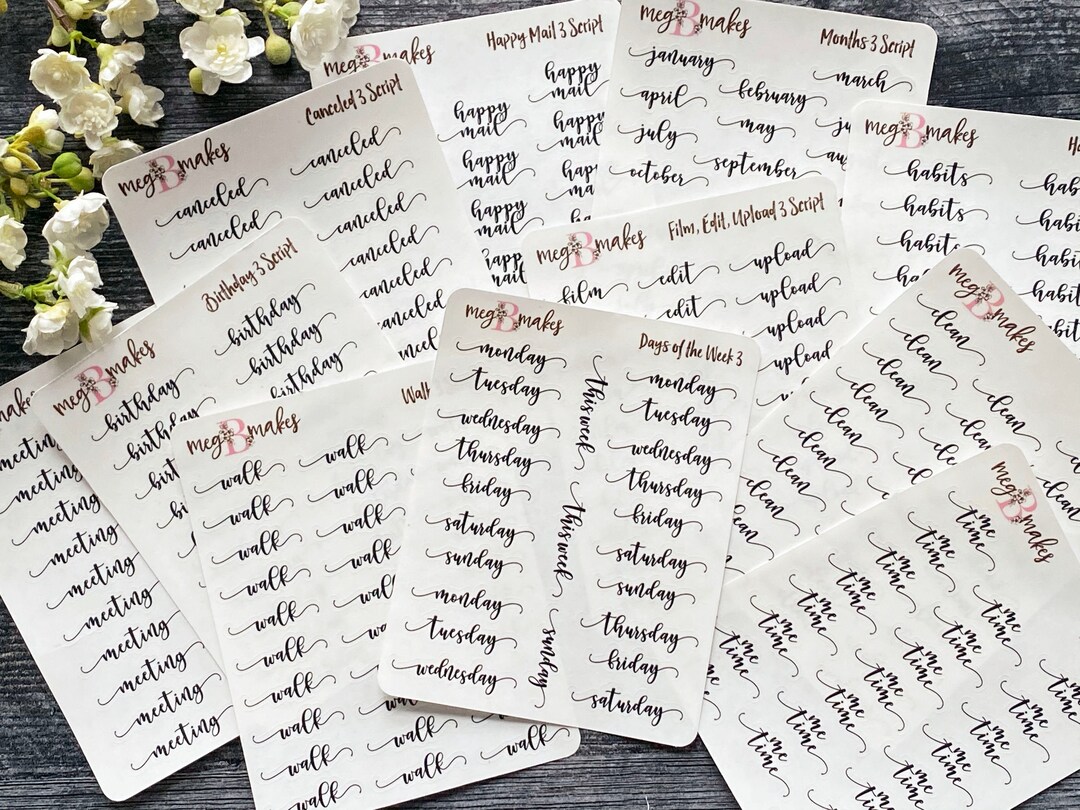 meg B makes
Happy Mail 3 Script
happy
mail
happy
mail
happy
mail
happy
mail
happy
mail
happy
meg B makes
Months 3 Script
january
february
march
april
may
july
august
september
october
meg B makes
Canceled 3 Script
canceled
canceled
canceled
canceled
canceled
canceled
canceled
canceled
meg B makes
habits
habits
habits
habits
habits
habits
meg B makes
Film, Edit, Upload 3 Script
film
edit
edit
upload
upload
upload
upload
meg B makes
Birthday 3 Script
birthday
birthday
birthday
birthday
birthday
makes
meeting
meeting
meeting
meeting
meeting
meeting
meeting
meeting
meeting
meeting
meg B makes
Walk
walk
walk
walk
walk
walk
walk
walk
walk
walk
walk
walk
walk
walk
walk
walk
walk
walk
meg B makes
Days of the Week 3
monday
tuesday
wednesday
thursday
friday
saturday
sunday
monday
tuesday
wednesday
this week
this week
sunday
monday
tuesday
wednesday
thursday
friday
saturday
sunday
thursday
friday
saturday
meg B makes
clean
clean
clean
clean
clean
clean
clean
clean
clean
meg B makes
me
time
me
time
me
time
me
time
me
time
me
time
me
time
me
time
me
time
me
time
me
time
me
time